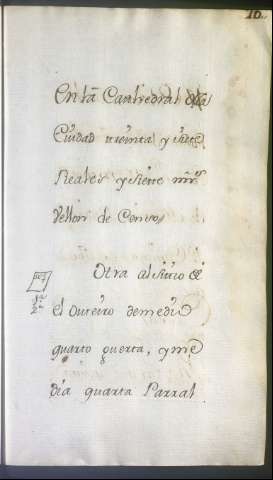 16.
En la Canthedral de la
Ciudad treinta y siete
Reales y siete mrs
Vellon de Censo,
Otra al sitio de
el Outeiro de medio
quarto puerta, y me
dia quarta Parral